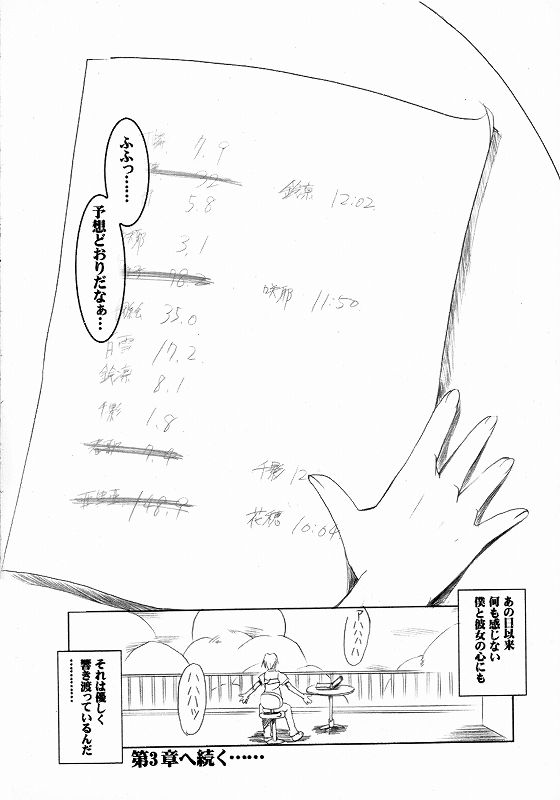 ふふっ……
予想どおりだなぁ…
7.9
92
鈴凛 12:02
5.8
3.1
98.2
咲耶 11:50
35.0
白雪 17.2
鈴凛 8.1
千影 1.8
7.9
千影 12
148.9
花穂 10:04
あの日以来
何も感じない
僕と彼女の心にも
アハハハハ
ハハハハッ
それは優しく
響き渡っているんだ
…………
第3章へ続く……